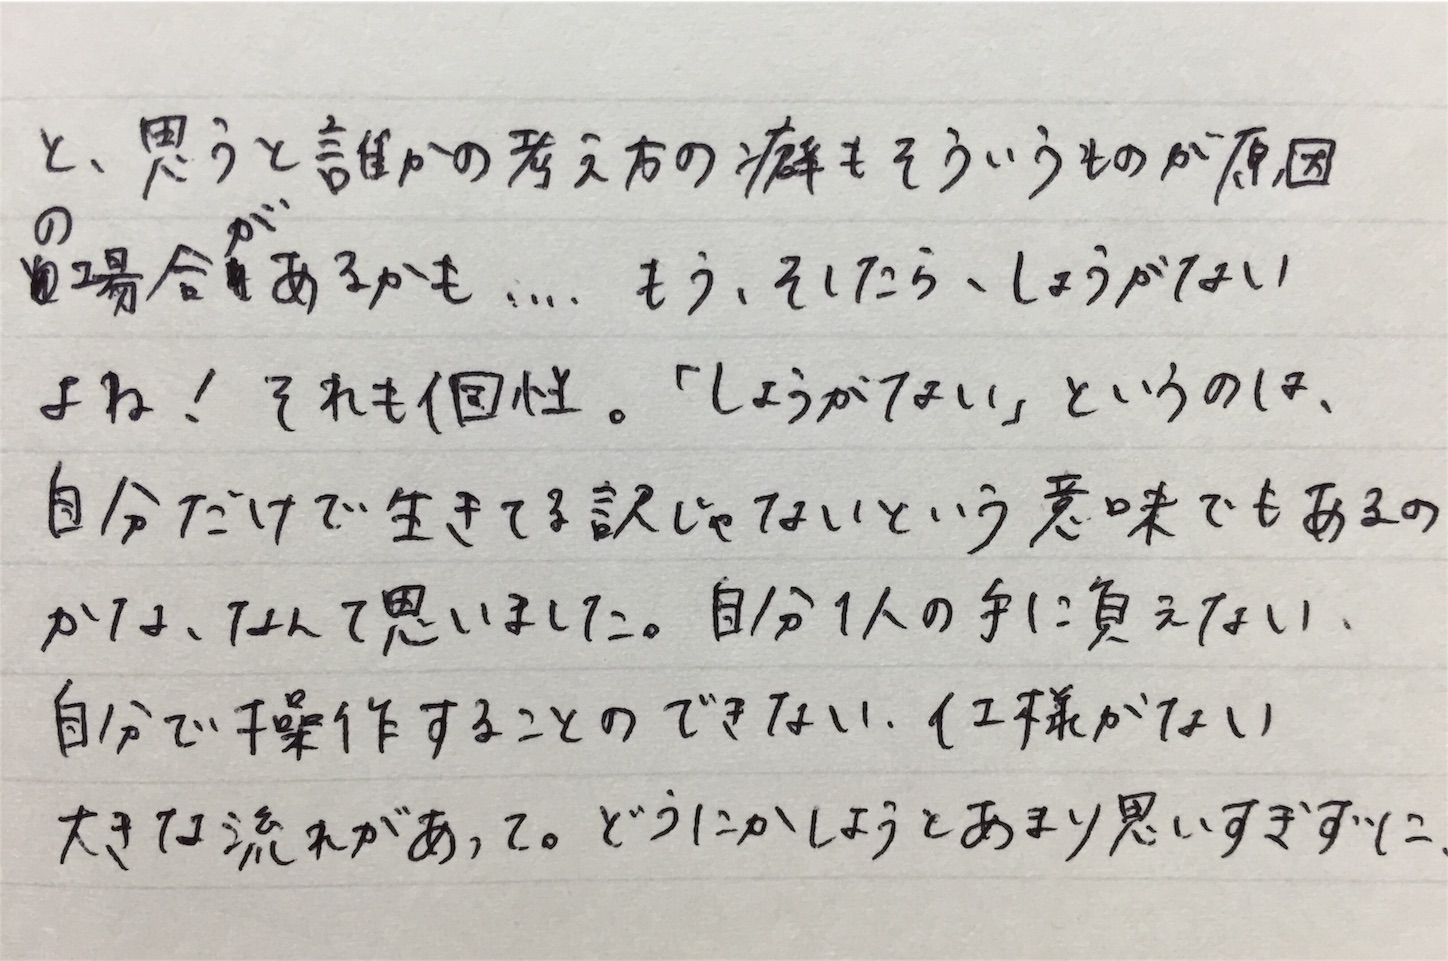 と、思うと誰かの考え方の癖もそういうものが原因
の場合があるかも.... もう、そしたら、しょうがない
よね！ それも個性。「しょうがない」というのは、
自分だけで生きてる訳じゃないという意味でもあるの
かな、なんて思いました。自分1人の手に負えない、
自分で操作することのできない、仕様がない
大きな流れがあって。どうにかしようとあまり思いすぎずに、